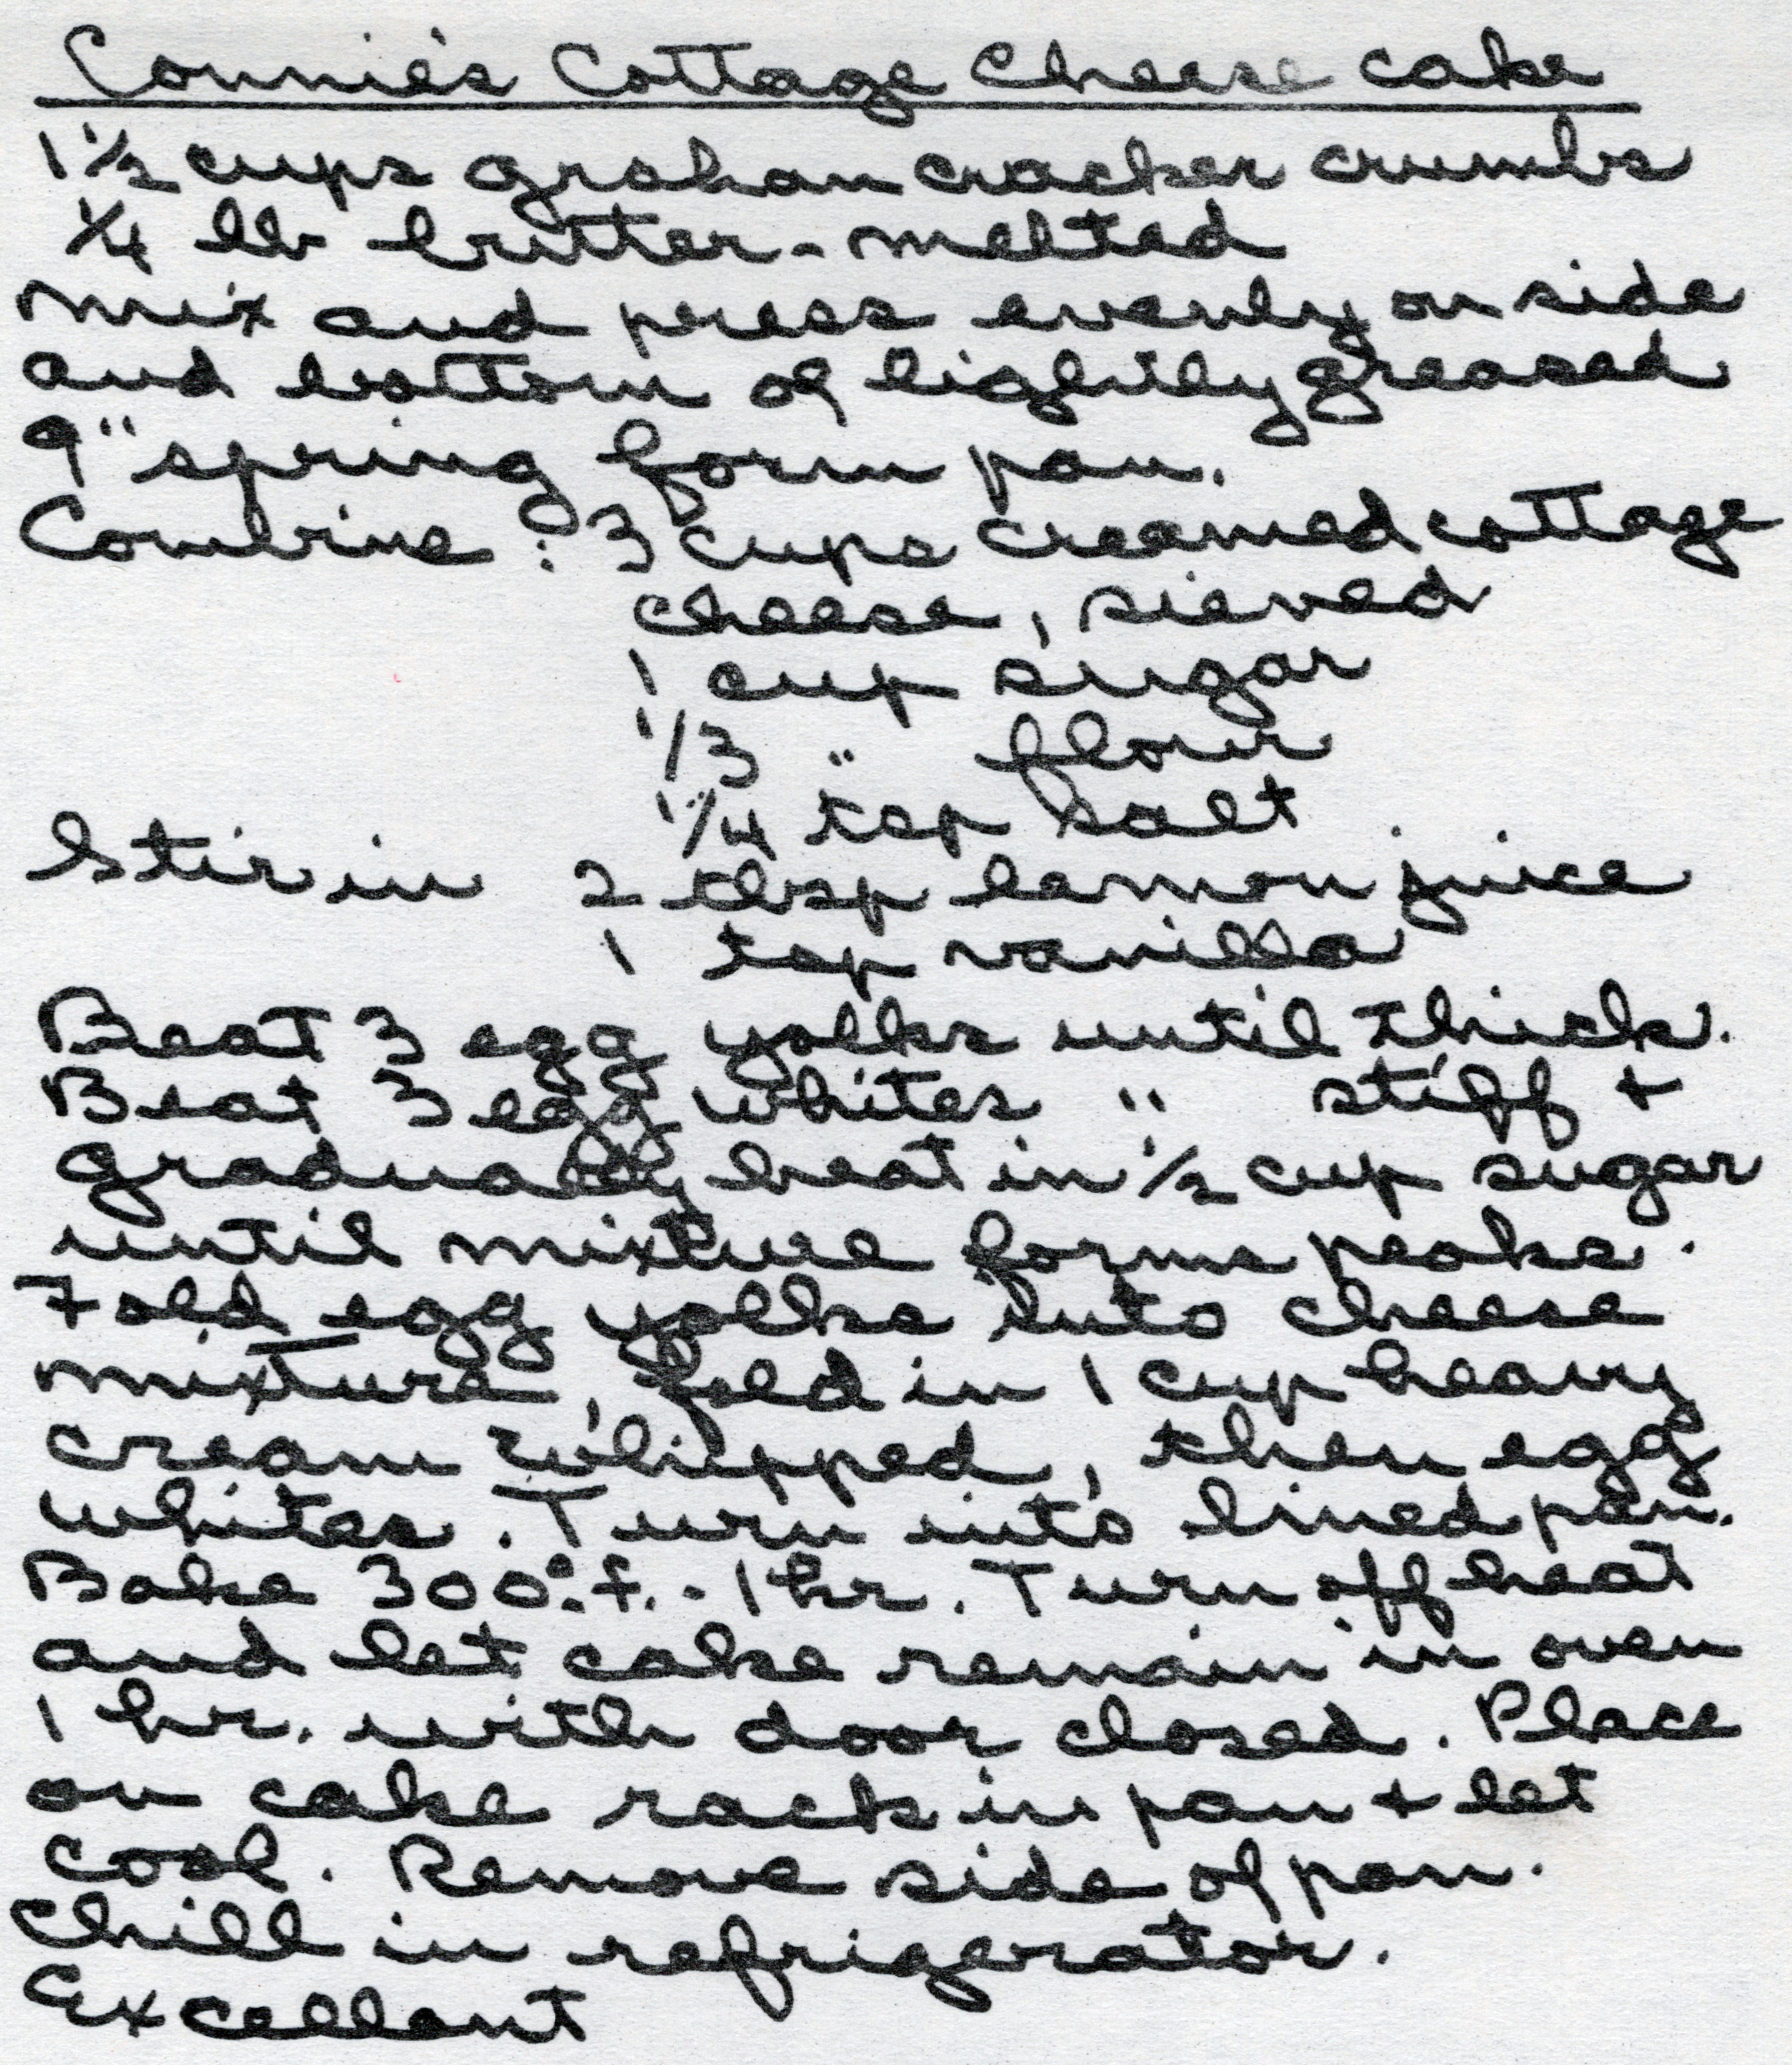 Connie's Cottage Cheese cake
1 1/2 cups graham cracker crumbs
1/4 lb butter - melted
mix and press evenly on side
and bottom of lightly greased
9" spring form pan.
Combine : 3 cups creamed cottage
cheese, sieved
1 cup sugar
1/3 " flour
1/4 tsp salt
Stir in 2 tbsp lemon juice
1 tsp vanilla
Beat 3 egg yolks until thick.
Beat 3 egg whites " stiff +
gradually beat in 1/2 cup sugar
until mixture forms peaks.
Fold egg yolks into cheese
mixture, fold in 1 cup heavy
cream whipped, then egg
whites. Turn into lined pan.
Bake 300° f. - 1 hr. Turn off heat
and let cake remain in oven
1 hr. with door closed. Place
on cake rack in pan + let
cool. Remove side of pan.
Chill in refrigerator.
Excellant